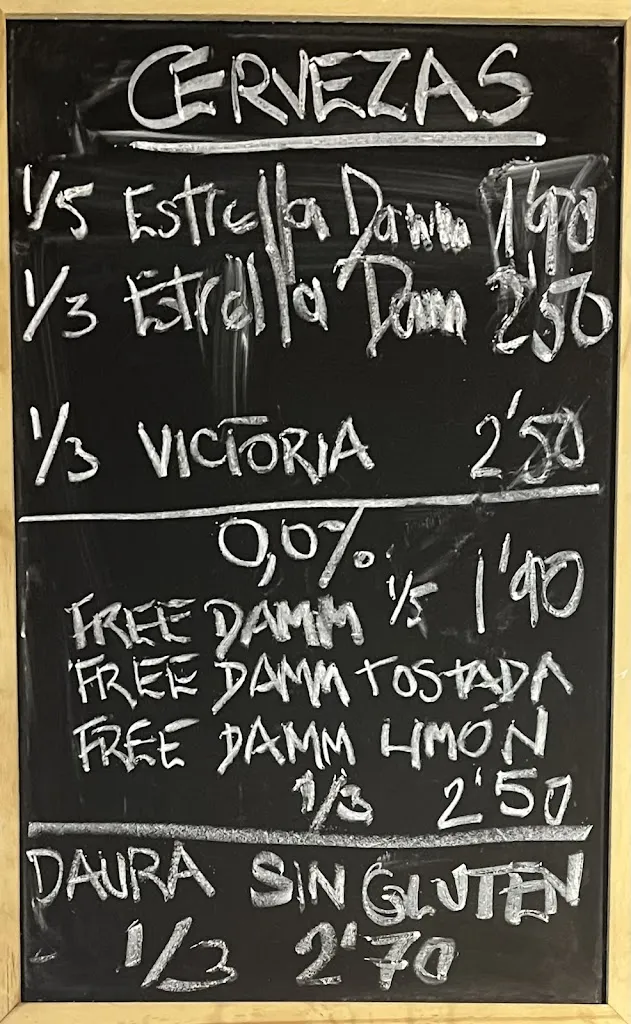 CERVEZAS
1/5 Estrella Damm 1'90
1/3 Estrella Damm 2'50
1/3 VICTORIA 2'50
0,0%
FREE DAMM 1/5 1'90
FREE DAMM TOSTADA
FREE DAMM LIMÓN
1/3 2'50
DAURA SIN GLUTEN
1/3 2'70